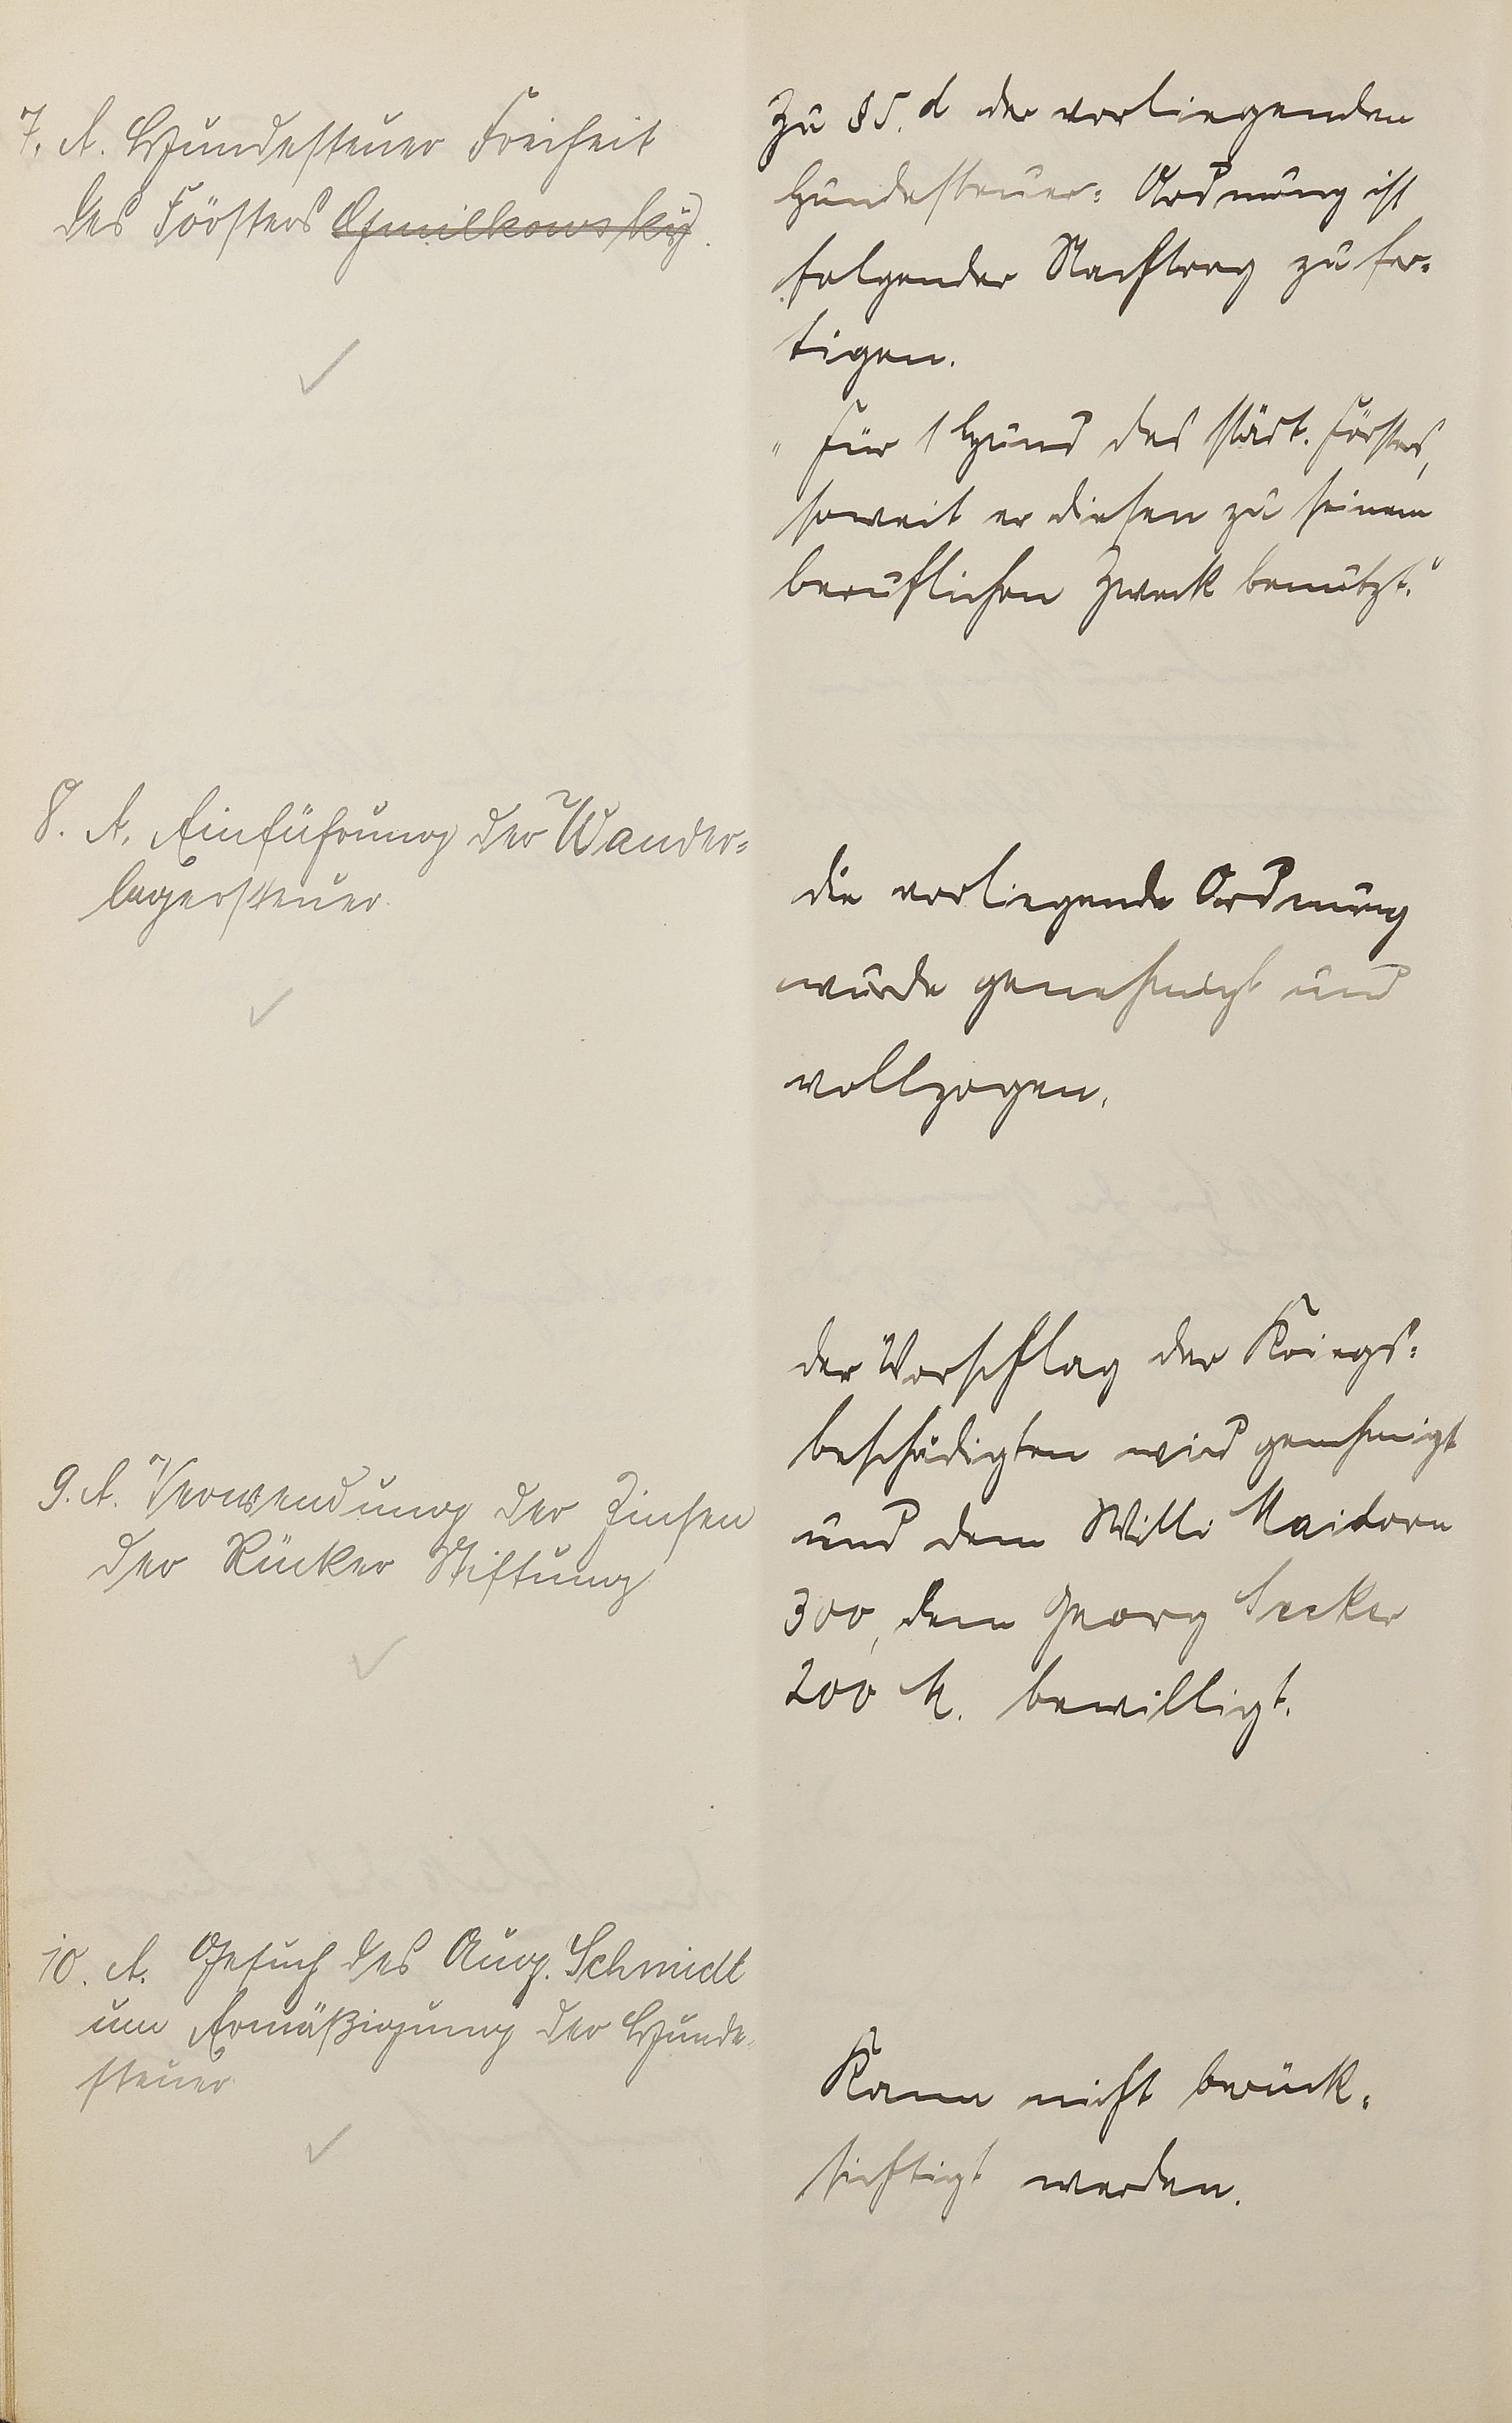 7. A. Hundesteuer Freiheit
des Försters Gmilkowsky.
Zu § 5. d der vorliegenden
Hundesteuer= Ordnung ist
folgender Nachtrag zu fer=
tigen.
"Für 1 Hund des städt. Försters,
soweit er diesen zu seinem
beruflichen Zweck benutzt."
8. A. Einführung der Wander=
lagersteuer.
die vorliegende Ordnung
wurde genehmigt und
vollzogen.
9. A. Verwendung der Zinsen
der Rücker Stiftung
der Vorschlag der Kriegs=
beschädigten wird genehmigt
und dem Willi Maidorn
300, dem Georg
200 M. bewilligt.
10. A. Gesuch des Aug. Schmidt
um Ermäßigung der Hunde=
steuer
Kann nicht berück=
sichtigt werden.